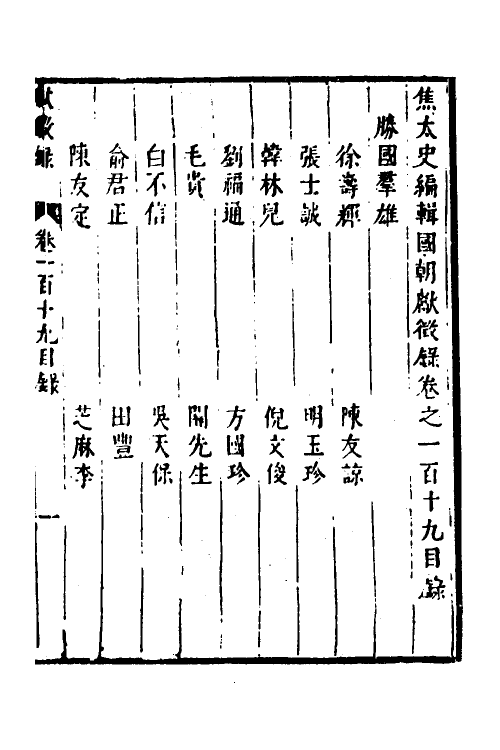 焦太史編輯國朝獻徵錄卷之一百十九目錄
勝國羣雄
徐壽輝　陳友諒
張士誠　明玉珍
韓林兒　倪文俊
劉福通　方國珍
毛貴　關先生
白不信　吳天保
俞君正　田豐
陳友定　芝麻李
獻徵錄　卷一百十九目錄　一